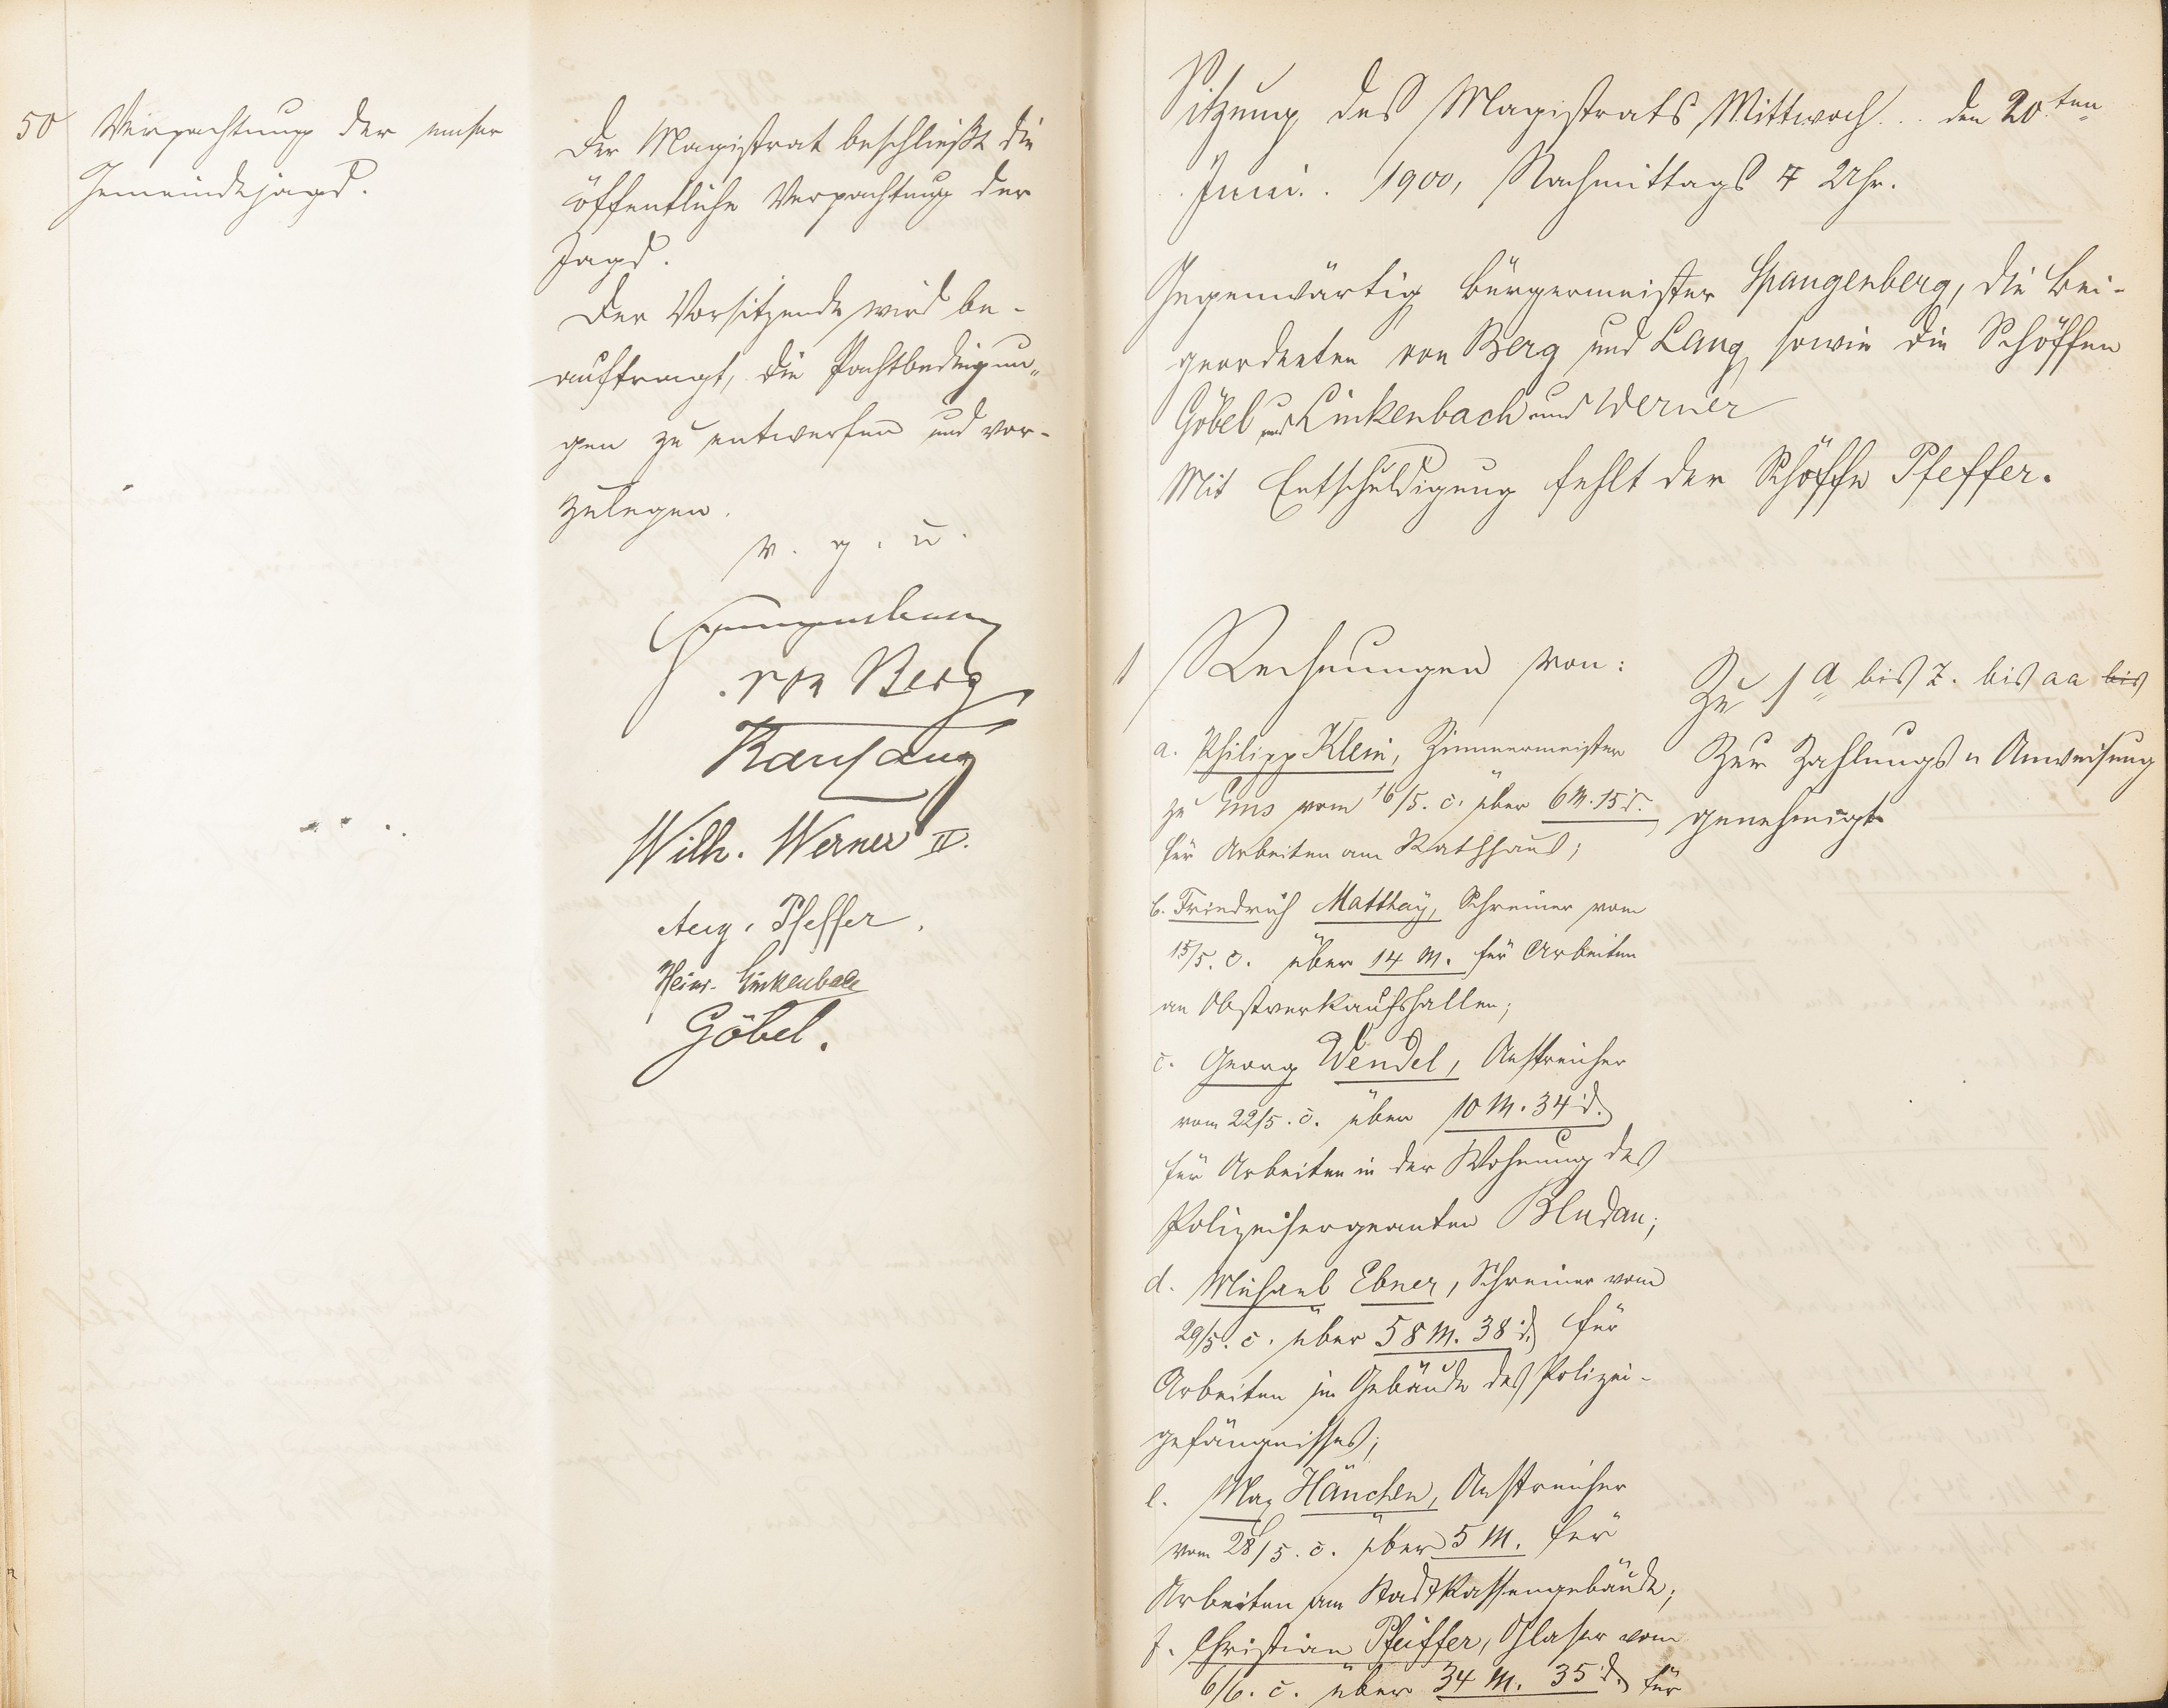 50 Verpachtung der emser
Gemeindejagd.
Der Magistrat beschließt die
öffentliche Verpachtung der
Jagd.
Der Vorsitzende wird be-
auftragt, die Pachtbedingun„
gen zu entwerfen und vor-
zulegen.
v. g. u.
Spangenberg
von Berg
Karl Lang
Wilh. Werner II.
Aug. Pfeffer.
Heinr. Linkenbach
Göbel.
Sitzung des Magistrats, Mittwoch... den 20.ten
Juni. . 1900, Nachmittags 7 Uhr.
Gegenwärtig Bürgermeister Spangenberg, die Bei-
geordneten von Berg und Lang, sowie die Schöffen
Göbel und Linkenbach und Werner
Mit Entschuldigung fehlt der Schöffe Pfeffer.
1 Rechnungen von:
a. Philipp Klein, Zimmermeister
zu Ems vom 16/5. c. über 6 M. 15 d.
für Arbeiten am Rathhaus;
b. Friedrich Matthäy, Schreiner vom
15/5. c. über 14 M. für Arbeiten
an Obstverkaufshallen;
c. Georg Wendel, Anstreicher
vom 22/5. c. über 10 M. 34 d.
für Arbeiten in der Wohnung des
Polizeisergeanten Bludau;
d. Michael Ebner, Schreiner vom
29/5. c. über 58 M. 38 d. für
Arbeiten im Gebäude des Polizei-
gefängnisses;
e. Max Hänchen, Anstreicher
vom 28/5. c. über 5 M. für
Arbeiten am Stadtkassengebäude;
f. Christian Pfeiffer, Glaser vom
6/6. c. über 34 M. 35 d. für
Zu 1 a bis z. bis aa bis
Zur Zahlungs„Anweisung
genehmigt